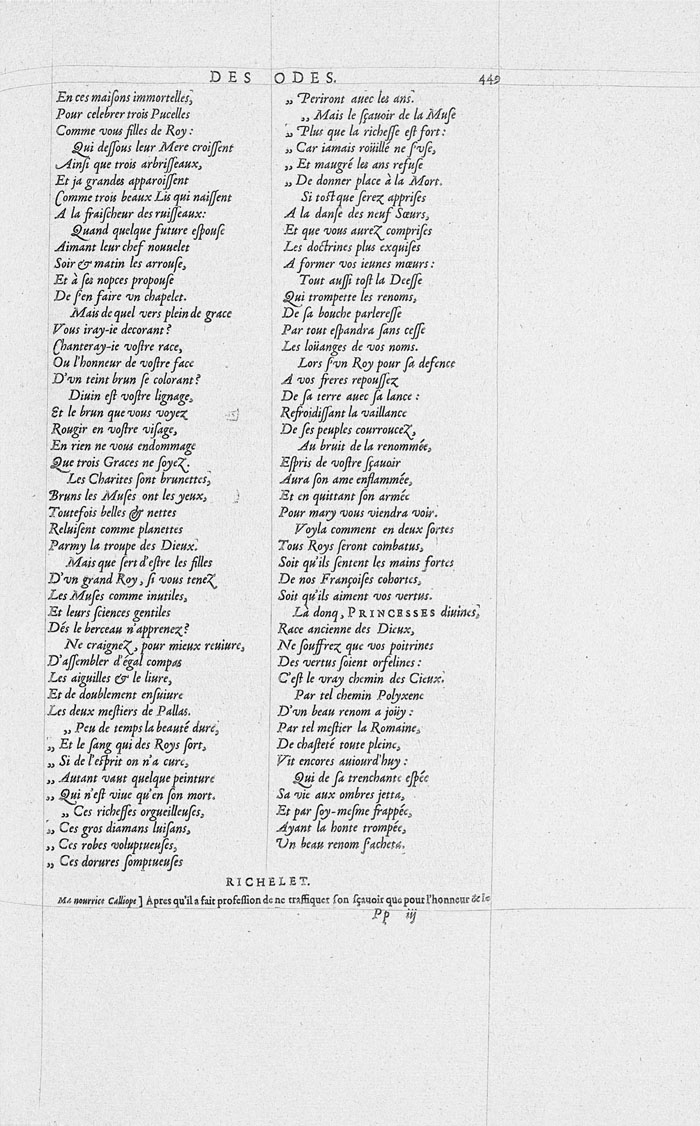 DES ODES. 449
En ces maiſons immortelles,
Pour celebrer trois Pucelles
Comme vous filles de Roy :
Qui deſſous leur Mere croiſſent
Ainſi que trois arbriſſeaux,
Et ja grandes apparoiſſent
Comme trois beaux Lis qui naiſſent
A la fraiſcheur des ruiſſeaux:
Quand quelque future eſpouſe
Aimant leur chef nouuelet
Soir & matin les arrouſe,
Et à ſes nopces propouſe
De s'en faire vn chapelet.
Mais de quel vers plein de grace
Vous iray-ie decorant ?
Chanteray-ie voſtre race,
Ou l'honneur de voſtre face
D'vn teint brun ſe colorant ?
Diuin eſt voſtre lignage,
Et le brun que vous voyez
Rougir en voſtre viſage,
En rien ne vous endommage
Que trois Graces ne ſoyez.
Les Charites ſont brunettes,
Bruns les Muſes ont les yeux,
Toutefois belles & nettes
Reluiſent comme planettes
Parmy la troupe des Dieux.
Mais que ſert d'eſtre les filles
D'vn grand Roy, ſi vous tenez
Les Muſes comme inutiles,
Et leurs ſciences gentiles
Dés le berceau n'apprenez ?
Ne craignez, pour mieux reuiure,
D'aſſembler d'égal compas
Les aiguilles & le liure,
Et de doublement enſuiure
Les deux meſtiers de Pallas.
„ Peu de temps la beauté dure,
„ Et le ſang qui des Roys ſort,
„ Si de l'eſprit on n'a cure,
„ Autant vaut quelque peinture
„ Qui n'eſt viue qu'en ſon mort.
„ Ces richeſſes orgueilleuſes,
„ Ces gros diamans luiſans,
„ Ces robes voluptueuſes,
„ Ces dorures ſomptueuſes
„ Periront auec les ans.
„ Mais le ſçauoir de la Muſe
„ Plus que la richeſſe eſt fort :
„ Car iamais roüillé ne s'vſe,
„ Et maugré les ans refuſe
„ De donner place à la Mort.
Si toſt que ſerez appriſes
A la danſe des neuf Sœurs,
Et que vous aurez compriſes
Les doctrines plus exquiſes
A former vos ieunes mœurs :
Tout auſſi toſt la Deeſſe
Qui trompette les renoms,
De ſa bouche parlereſſe
Par tout eſpandra ſans ceſſe
Les loüanges de vos noms.
Lors s'vn Roy pour ſa defence
A vos freres repouſſez
De ſa terre auec ſa lance :
Refroidiſſant la vaillance
De ſes peuples courroucez,
Au bruit de la renommée,
Eſpris de voſtre ſçauoir
Aura ſon ame enflammée,
Et en quittant ſon armée
Pour mary vous viendra voir.
Voyla comment en deux ſortes
Tous Roys ſeront combatus,
Soit qu'ils ſentent les mains fortes
De nos Françoiſes cohortes,
Soit qu'ils aiment vos vertus.
Là donq, PRINCESSES diuines,
Race ancienne des Dieux,
Ne ſouffrez que vos poitrines
Des vertus ſoient orfelines :
C'eſt le vray chemin des Cieux.
Par tel chemin Polyxene
D'vn beau renom a joüy :
Par tel meſtier la Romaine,
De chaſteté toute pleine,
Vit encores auiourd'huy :
Qui de ſa trenchante eſpée
Sa vie aux ombres jetta,
Et par ſoy-meſme frappée,
Ayant la honte trompée,
Vn beau renom s'acheta.
RICHELET.
Ma nourrice Calliope ] Apres qu'il a fait profeſſion de ne traffiquer ſon ſçauoir que pour l'honneur & le
Pp iij